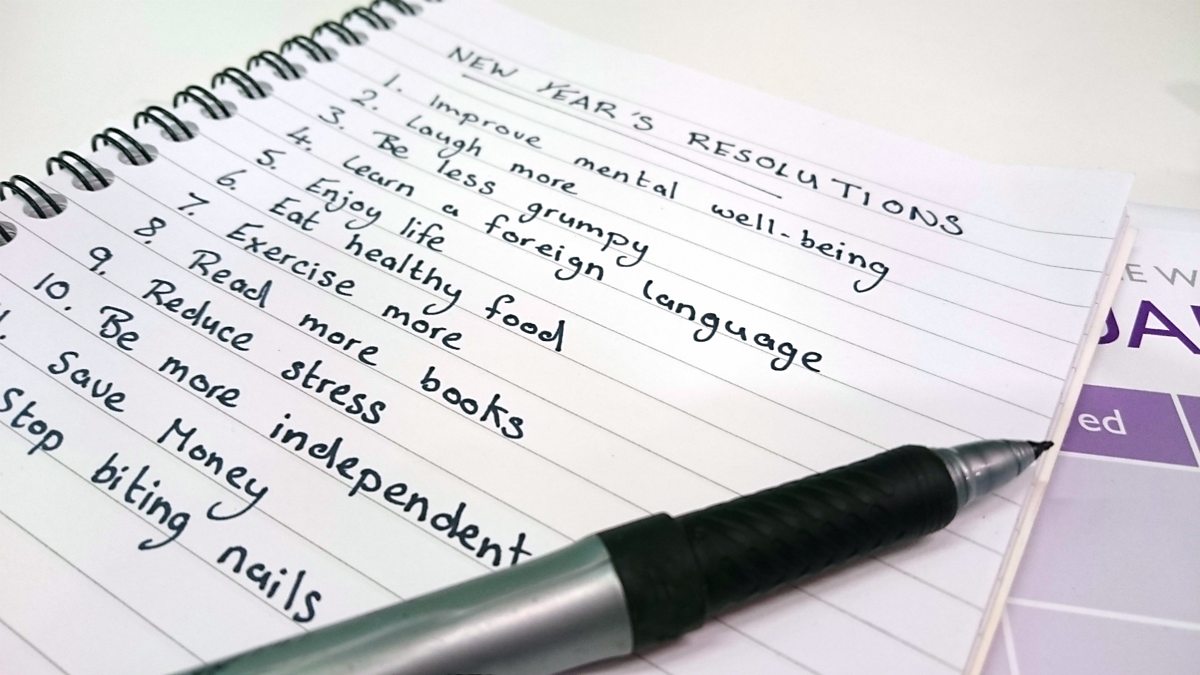 NEW YEAR'S RESOLUTIONS
1. Improve mental well-being
2. Laugh more
3. Be less grumpy
4. Learn a foreign language
5. Enjoy life
6. Eat healthy food
7. Exercise more
8. Read more books
9. Reduce stress
10. Be more independent
1. Save Money
Stop biting nails
E W
JA
ed